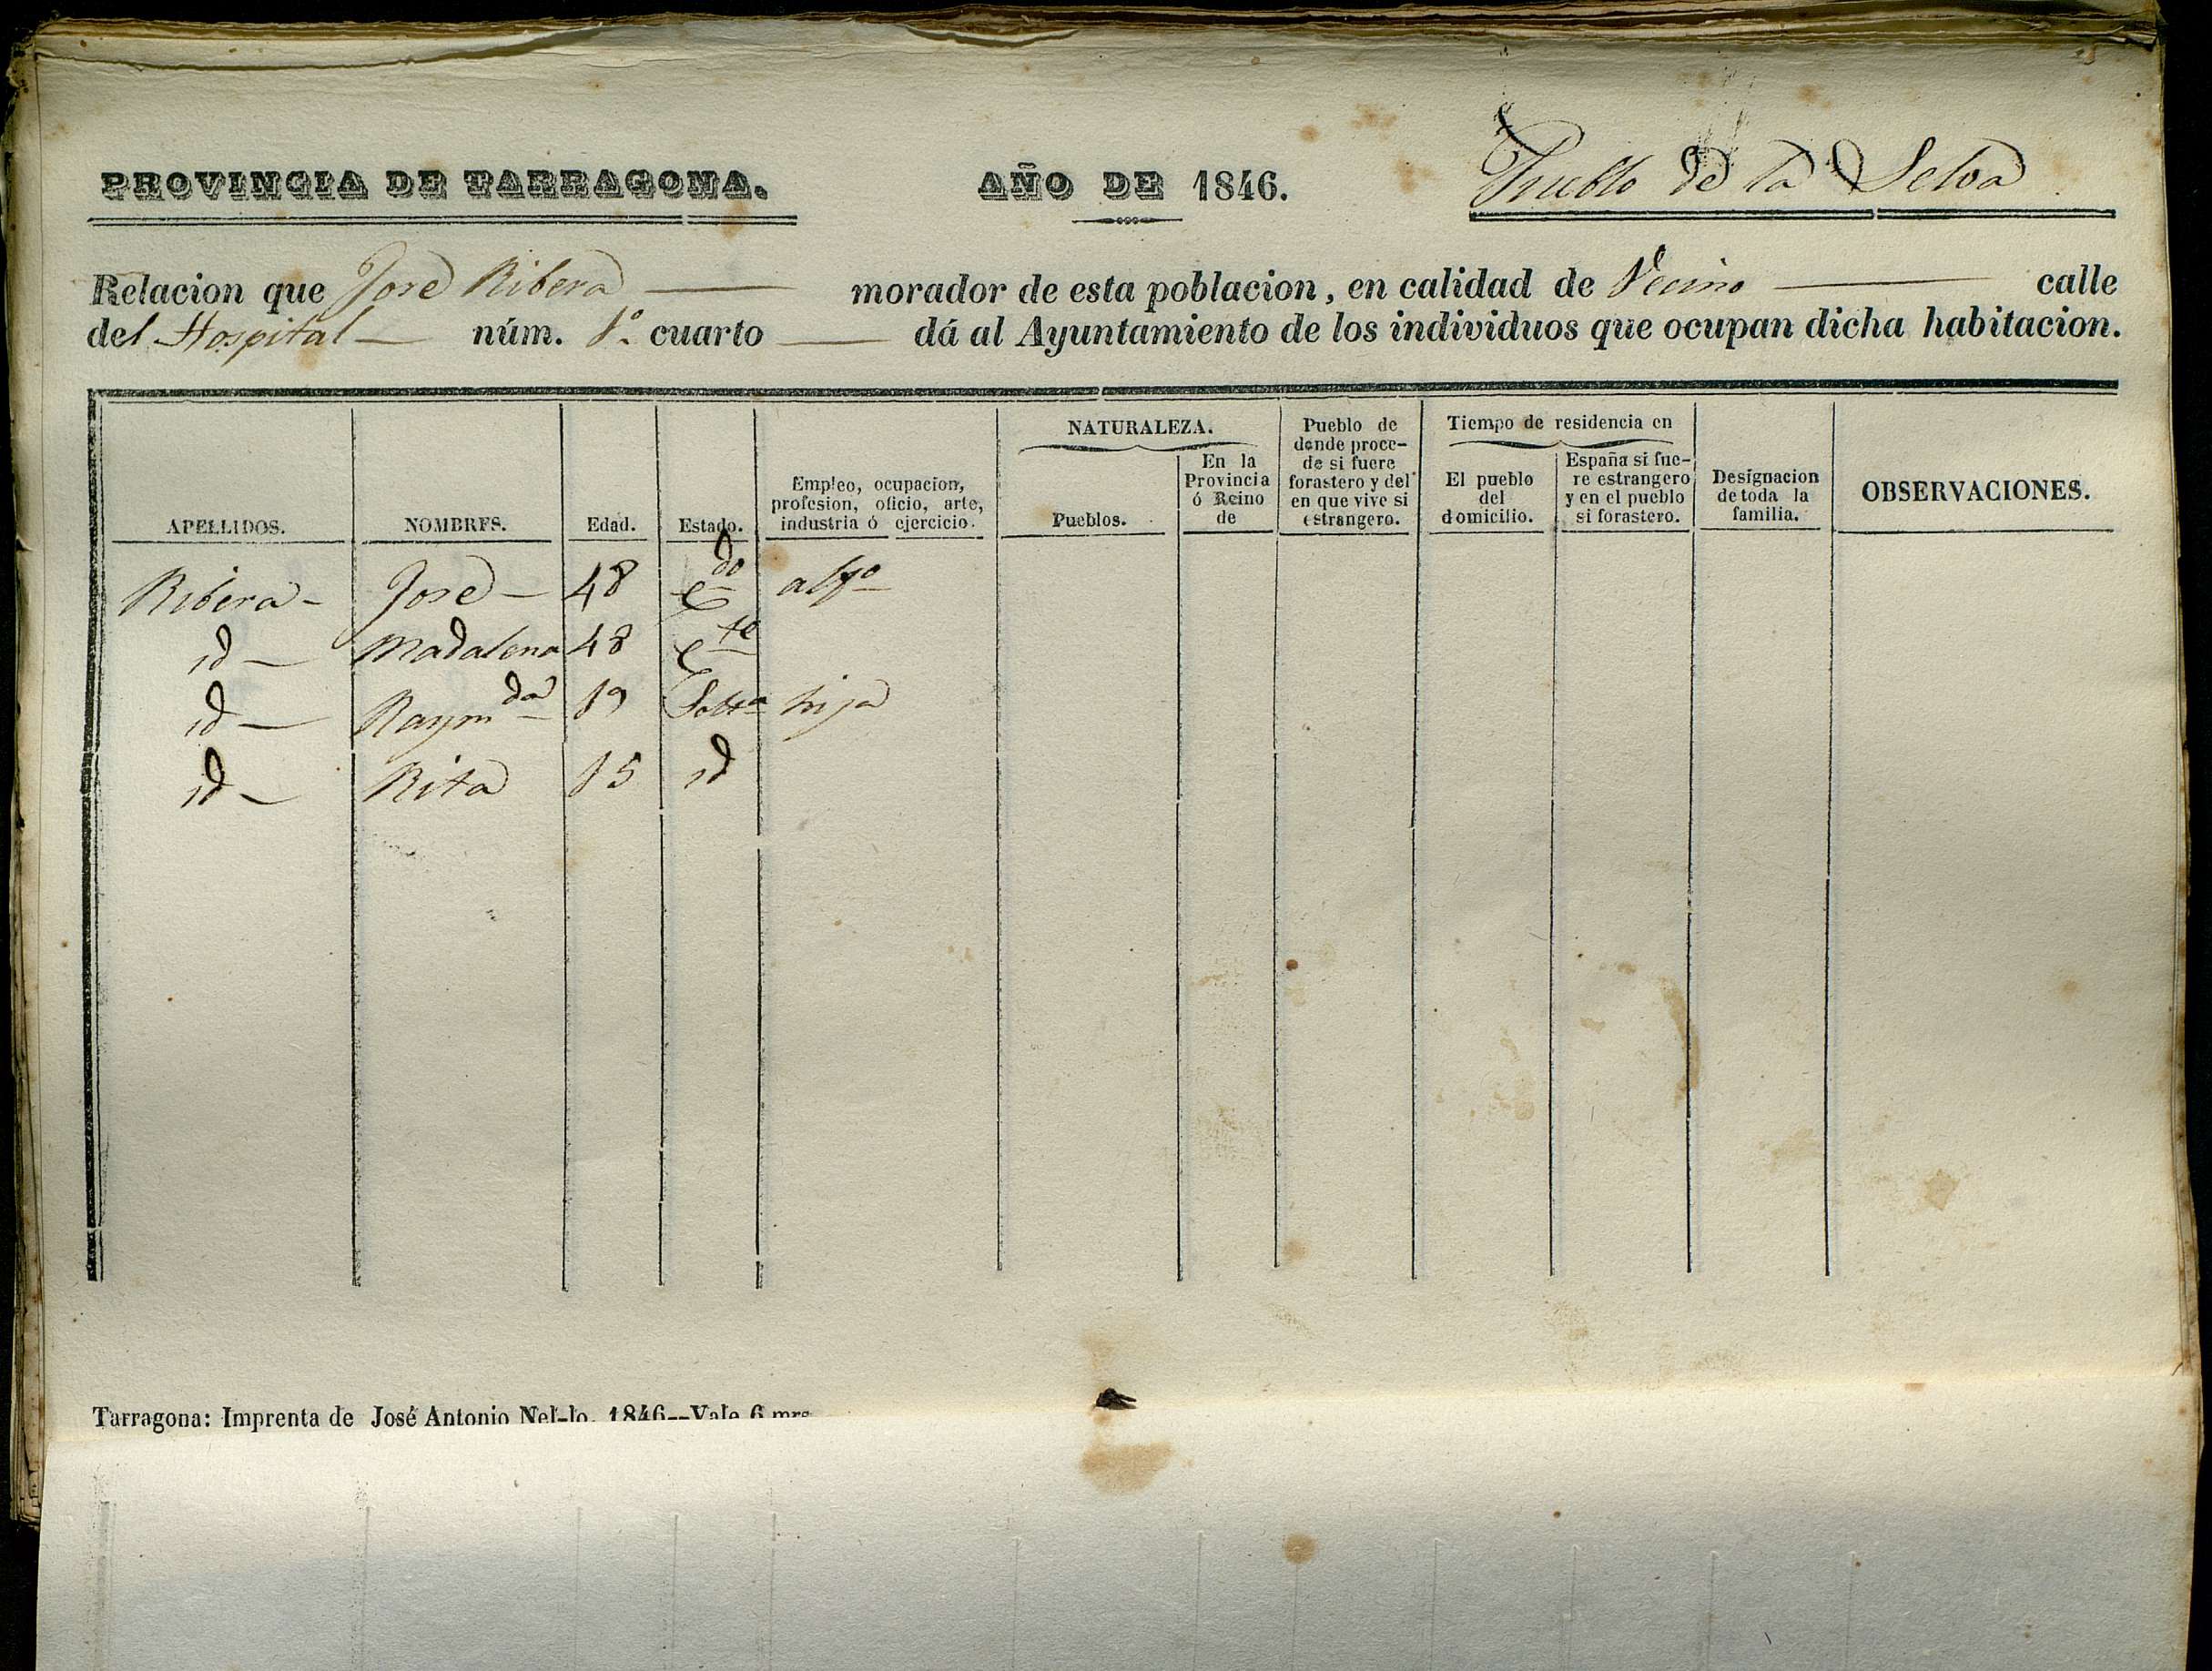 PROVINCIA DE TARRAGONA. AÑO DE 1846. Pueblo de la Selva
Relacion que José Ribera morador de esta poblacion, en calidad de Vecino calle
del Hospital núm. 1º cuarto dá al Ayuntamiento de los individuos que ocupan dicha habitacion.
APELLIDOS.
NOMBRES.
Edad.
Estado.
Empleo, ocupacion,
profesion, oficio, arte,
industria ó ejercicio.
NATURALEZA.
Pueblos.
En la
Provincia
ó Reino
de
Pueblo de
donde proce-
de si fuere
forastero y del
en que vive si
estrangero.
Tiempo de residencia en
El pueblo
del
domicilio.
España si fue-
re estrangero
y en el pueblo
si forastero.
Designacion
de toda la
familia.
OBSERVACIONES.
Ribera José 48 cdo
id Madalena 48
id Raymda 19 Solta hija
id Rita 15 id
Tarragona: Imprenta de José Antonio Nel-lo. 1846--Vale 6 mrs